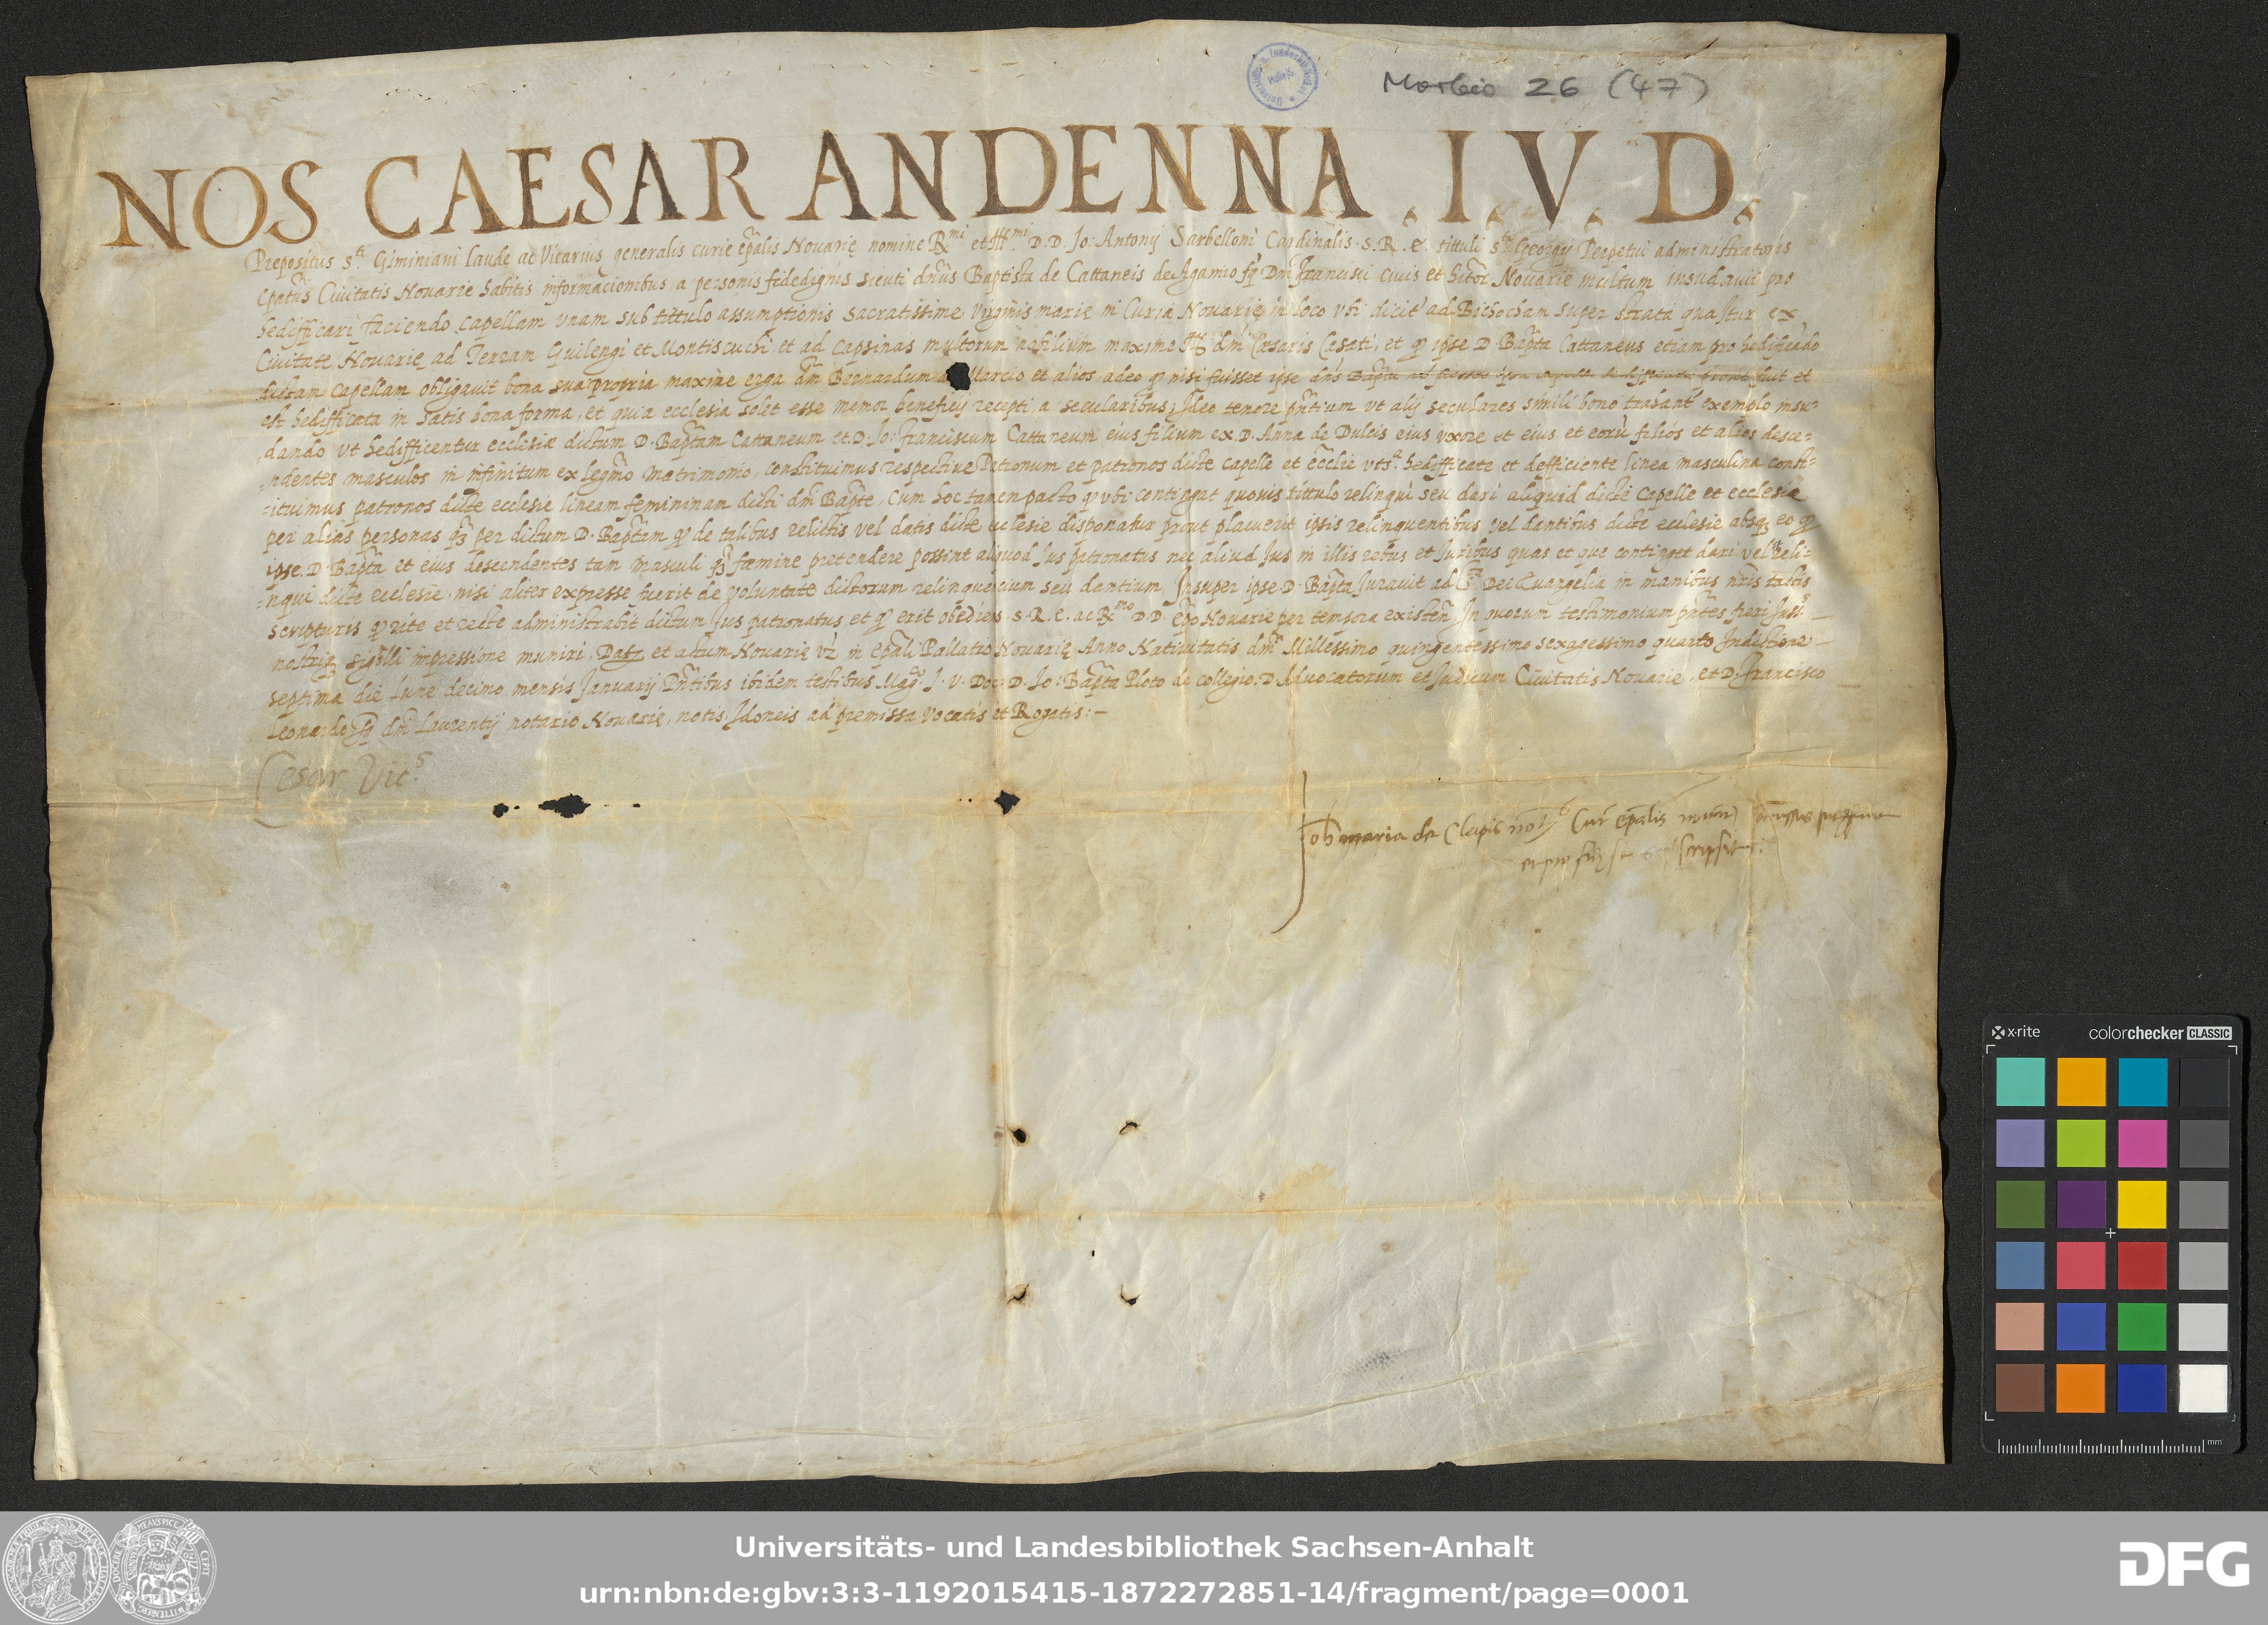 Morbio 26 (47)
NOS CAESAR ANDENNA . I. V. D.
Prepositus s.ti Giminiani laude ac Vicarius generalis curie ep̄alis Novarię nomine R.mi et Ill.mi D. D. Jo: Antonij Sarbelloni Cardinalis . S. R. E. tittuli s.ti Georgij Perpetui administratoris
Ep̄atus Civitatis Novarie habitis informacionibus a personis fidedignis sicuti dn̄us Baptista de Cattaneis de Agamio fq̄ Dn̄i Francisci civis et hītor Novarie multum insudavit pro
hedifficari faciendo capellam unam sub tittulo assumptionis sacratissime Virginis marie in Curia Novarię in loco ubi dicit' ad Bichocham super strata qua itur ex
Civitate Novarię ad Terram Guilengi et Montiscuchi et ad capsinas multorum nobilium maxime Ill. dm̄i Cæsaris Casati, et qͻ ipse D Bap̄ta Cattaneus etiam pro hedificādo
dictam capellam obligavit bona sua propria maxime erga dm̄ Bernardum Marcio et alios, adeo qͻ nisi fuisset ipse dn̄s Bap̄ta fuit et
est hedifficata in satis bona forma, et quia ecclesia solet esse memor beneficij recepti a secularibus; Ideo tenore pn̄tium ut alij seculares simili bono trahant' exemplo insu=
=dando ut hedifficentur ecclesiæ dictum D. Bap̄tam Cattaneum et D. Jo: Franciscum Cattaneum eius filium ex D. Anna de Dulcis eius uxore et eius et eorū filios et alios desce=
=ndentes masculos in infinitum ex legm̄o matrimonio, constituimus respective Patronum et patronos dicte capelle et ecclīe uts.a hedifficate et defficiente linea masculina const=
=ituimus patronos dicte ecclesie lineam femininam dicti dm̄ Bap̄te, Cum hoc tamen pacto qͻ ubi contingat quovis tittulo relinqui seu dari aliquid dicte capelle et ecclesiæ
per alias personas qꝫ per dictum D. Bap̄tam qͻ de talibus relictis vel datis dicte ecclesie disponatur prout placuerit ipsis relinquentibus vel dentibus dicte ecclesie absqꝫ eo qͻ
ipse D. Bap̄ta et eius descendentes tam masculi qꝫ fœmine pretendere possint aliquod Jus patronatus nec aliud Jus in illis rebus et Juribus quas et que continget dari vel reli=
=nqui dicte ecclesie, nisi aliter expresse fuerit de voluntate dictorum relinquencium seu dantium Insuper ipse D. Bap̄ta Juravit ad S.ta Dei Evangelia in manibus nr̄is tactis
scripturis qͻ rite et recte administrabit dictum Jus patronatus et qͻ erit obediens S. R. E. ac R.mo D D. Ep̄o Novarie per tempora existen̄, In quorum testimonium pn̄tes fieri Juss.s
nostriqꝫ sigilli impressione muniri, Datꝫ et actum Novarię vz in ep̄ali Pallatio Novarię Anno Nativitatis dm̄i Millessimo quingentessimo sexagessimo quarto Indictione
septima die lune decimo mensis Januarij Pn̄tibus ibidem testibus Mag.co J. V. Doc. D. Jo: Bap̄ta Ploto de collegio D. Advocatorum et Judicum Civitatis Novarie, et D. Francisco
Leonardo fq̄ dm̄ Laurentij notario Novarię, notis Idoneis ad premissa vocatis et Rogatis: —
Cesar Vic.s
Joh maria de Clapis not.s Cur ep̄alis
x·rite colorchecker CLASSIC
mm
Universitäts- und Landesbibliothek Sachsen-Anhalt
urn:nbn:de:gbv:3:3-1192015415-1872272851-14/fragment/page=0001
DFG